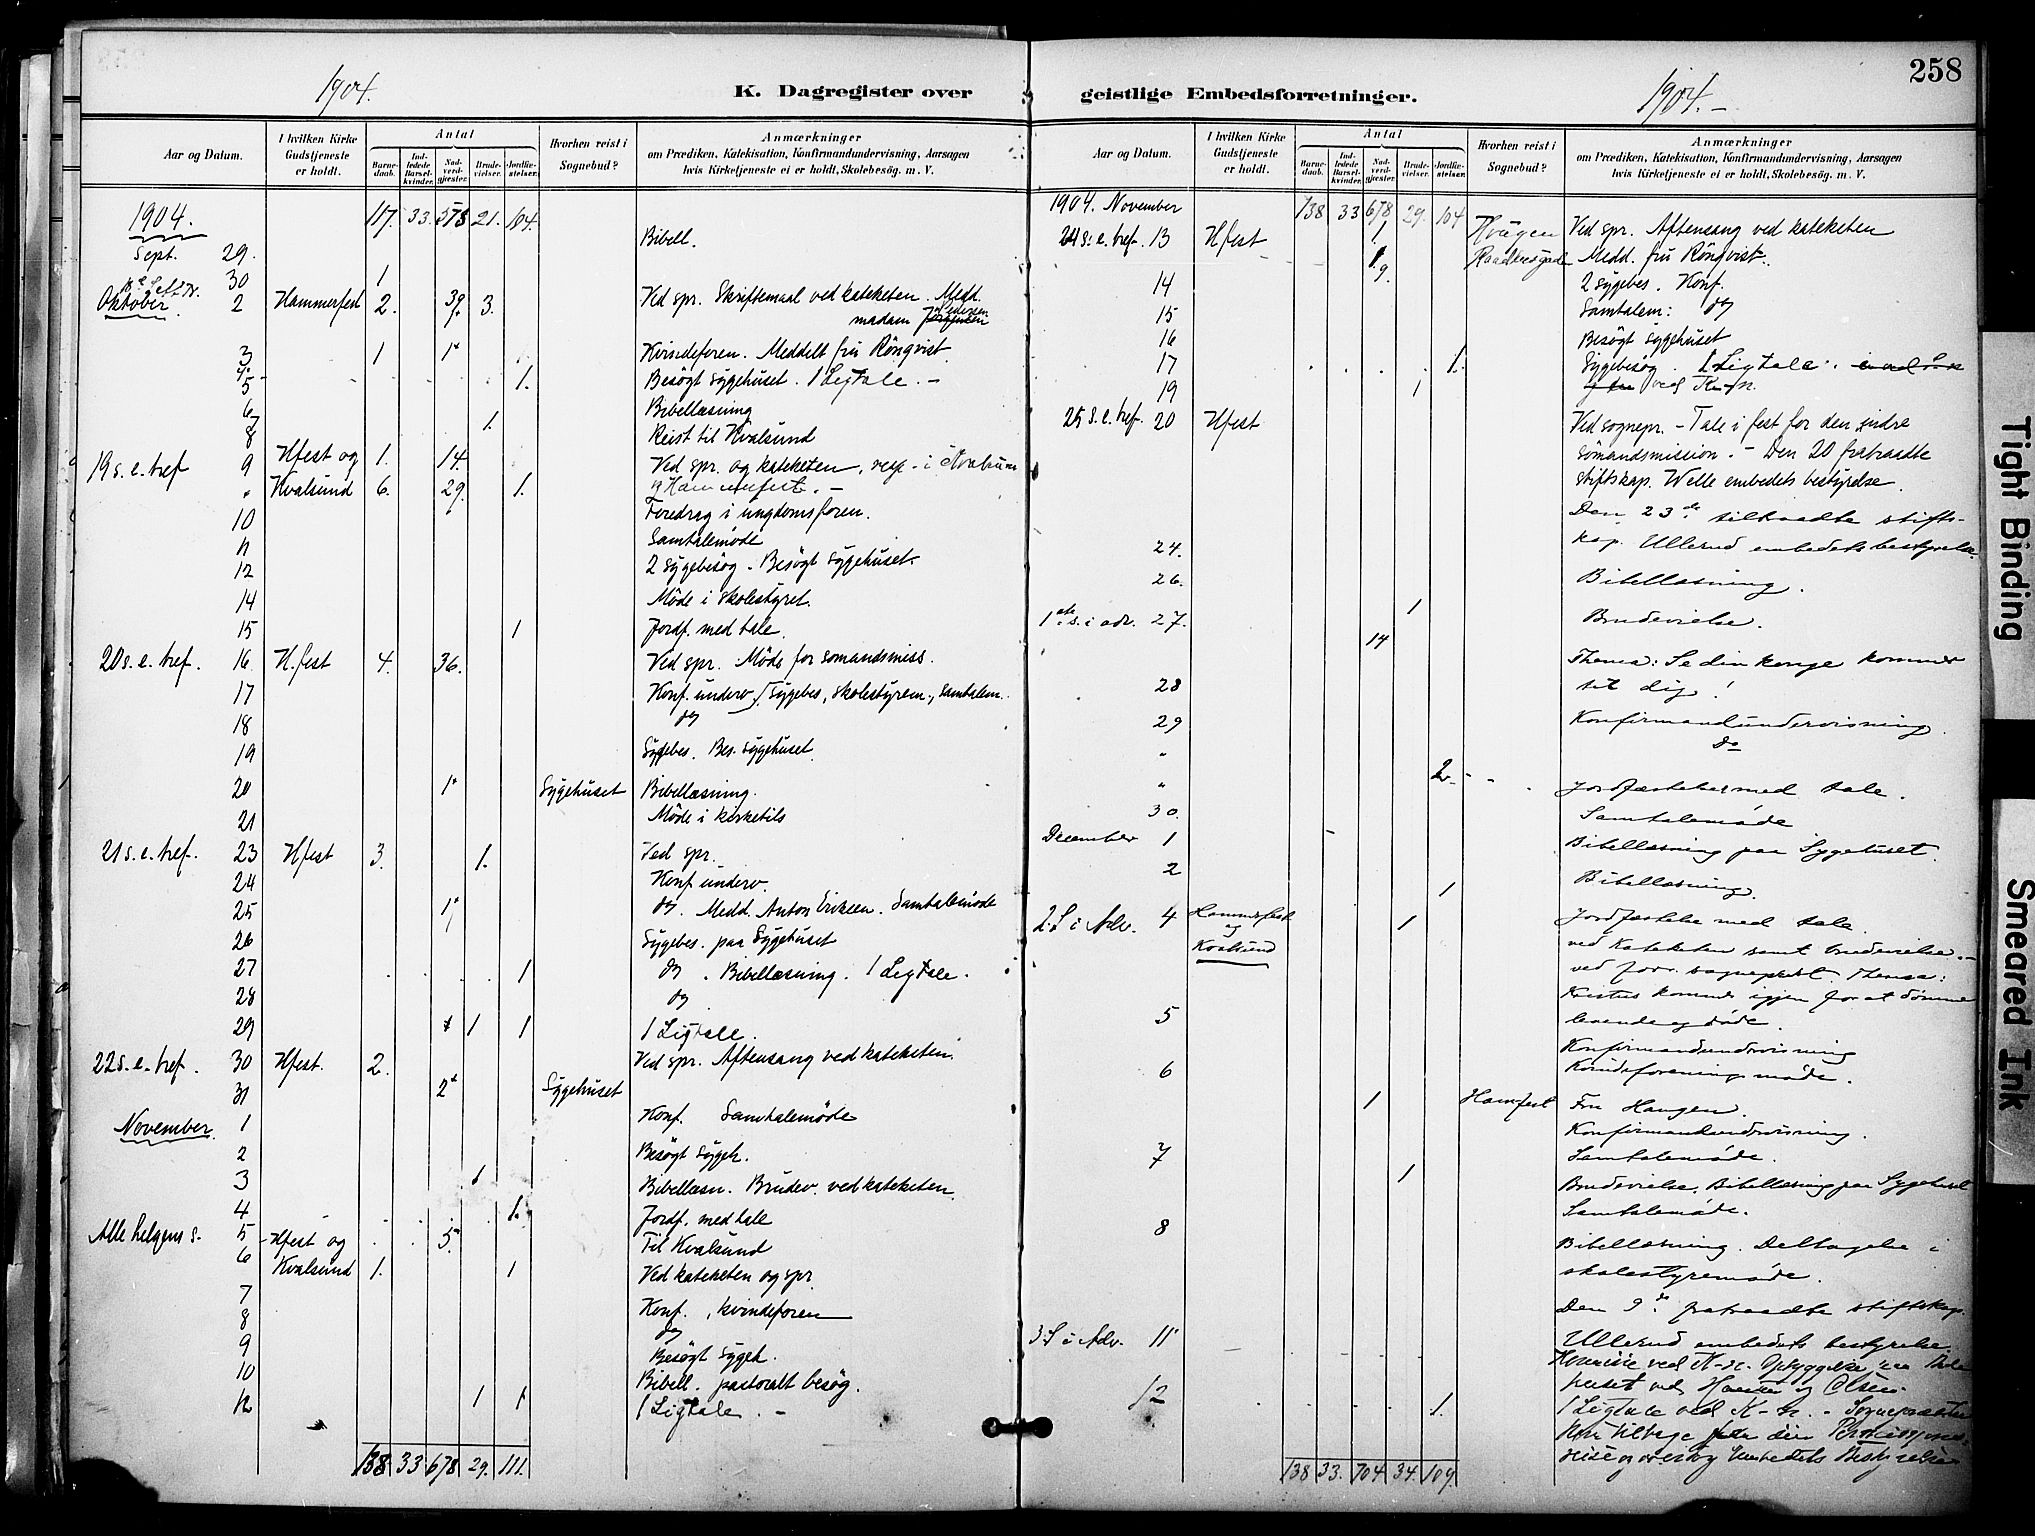 258
1904.
K. Dagregister over
geistlige Embedsforretninger.
1904.-
Aar og Datum.
I hvilken Kirke Gudstjeneste er holdt.
Antal
Barne-daab.
Ind-ledede Barsel-kvinder.
Nad-verd-gjæster.
Brude-vielser.
Jordfæ-stelser.
Hvorhen reist i Sognebud?
Anmærkninger
om Prædiken, Katekisation, Konfirmandundervisning, Aarsagen
hvis Kirketjeneste ei er holdt, Skolebesøg. m. V.
1904. 117. 33. 578 21. 104.
Sept. 29. Bibell.
30 1
Oktober 2 Hammerfest 2. 39. 3. Ved spr. Skriftemaal ved kateketen. Medd.
madam Pedersen
3 1 1 Kvindeforen. Meddelt fru Rönqvist.
4.
5 1. Besøgt sygehuset. 1 Ligtale. -
6 Bibellæsning
7 1.
8 Reist til Kvalsund
19 s. e. tref 9 Hfest og 1. 14. Ved spr. og kateketen, resp. i Kvalsund
" Kvalsund 6. 29. 1. og Hammerfest. -
10 Foredrag i ungdomsforen.
11 Samtalemøde
12 2 sygebesøg. Besøgt sygehuset.
14 Møde i skolestyret.
15 1 Jordf. med tale.
20 s. e. tref. 16 H.fest 4. 36. Ved spr. Møde for sømandsmiss.
17 Konf. underv. / Sygebes, skolestyrem., samtalem.
18 do
19 Sygebes. Bes. sygehuset
20 1 Sygehuset Bibellæsning.
21 Møde i kirketils
21 s. e. tref. 23 Hfest 3. 1. Ved spr.
24 Konf underv.
25 1 do. Medd. Anton Eriksen. Samtalemöde
26 Sygebes. paa Sygehuset
27 1 do. Bibellæsning. 1 Ligtale.
28 do
29 1 1 1 Ligtale.
22 s. e. tref. 30 Hfest. 2. Ved spr. Aftensang ved kateketen.
31 2 Sygehuset
November 1 Konf. Samtalemöde
2 Besøgt Sygeh.
3 1 Bibellæsn. Brudev. ved kateketen.
4 1. Jordf. med tale
Alle helgens s. 5 Hfest og 5. Til Kvalsund
6 Kvalsund 1. 1 Ved kateketen og spr.
7 Konf., kvindeforen
8 do
9 Besøgt Sygeh.
10 Bibell. pastoralt besøg.
12 1 1 1 Ligtale. -
138 33 678 29. 111.
Aar og Datum.
I hvilken Kirke Gudstjeneste er holdt.
Antal
Barne-daab.
Ind-ledede Barsel-kvinder.
Nad-verd-gjæster.
Brude-vielser.
Jordfæ-stelser.
Hvorhen reist i Sognebud?
Anmærkninger
om Prædiken, Katekisation, Konfirmandundervisning, Aarsagen
hvis Kirketjeneste ei er holdt, Skolebesøg. m. V.
1904. November 138 33 678 29. 104
24 s. e. tref. 13 Hfest 1 Haugen Ved spr. Aftensang ved kateketen
9 Medd. fru Rönqvist.
14 2 sygebes. Konf.
15 Samtalem: do
16 Besøgt sygehuset
17 1. Sygebesøg. 1 Ligtale.
19 1 ved K-n.
25 s. e. tref. 20 Hfest Ved sognepr. - Tale i fest for den indre
sömandsmission. - Den 20 fratraadte
stiftskap. Welle embedets bestyrelse.
Den 23de tiltraadte stifts-
24. kap. Ullerud embedets bestyrelse
26. Bibellæsning.
1ste s. i adv. 27. 1 Brudevielse.
14 Thema: Se din konge kommer
28 til dig!
29 Konfirmandundervisning.
" do
" 2 Jordfæstelser med tale.
30. Samtalemøde
December 1 Bibellæsning paa Sygehuset.
2 Bibellæsning.
1 Jordfæstelse med tale
2. S. i Adv. 4 Hammerfest og Kvalsund 1 ved Kateketen samt brudevielse. -
ved forr. sogneprest. Thema:
Kristus kommer igjen for at dömme
5 levende og döde.
Konfirmandundervisning
6 Kvindeforeningsmøde.
1 Hamfest Fru Haugen.
Konfirmandundervisning.
7 Samtalemøde.
1 Brudevielse. Bibellæsning paa Sygehuset
Samtalemøde.
8 Bibellæsning. Deltagelse i
skolestyremøde.
Den 9de fratraadte stiftskap.
3. S. i Adv. 11 Ullerud embedets bestyrelse.
ved K-n. Opbyggelse paa Bede
huset ved Hansen og Olsen.
12 1. 1 Ligtale ved K-n. - Sognepræsten
kom tilbage fra sin
reise og overtog Embedets Bestyrelse
138 33. 704 34. 109.
Tight Binding
Smeared Ink